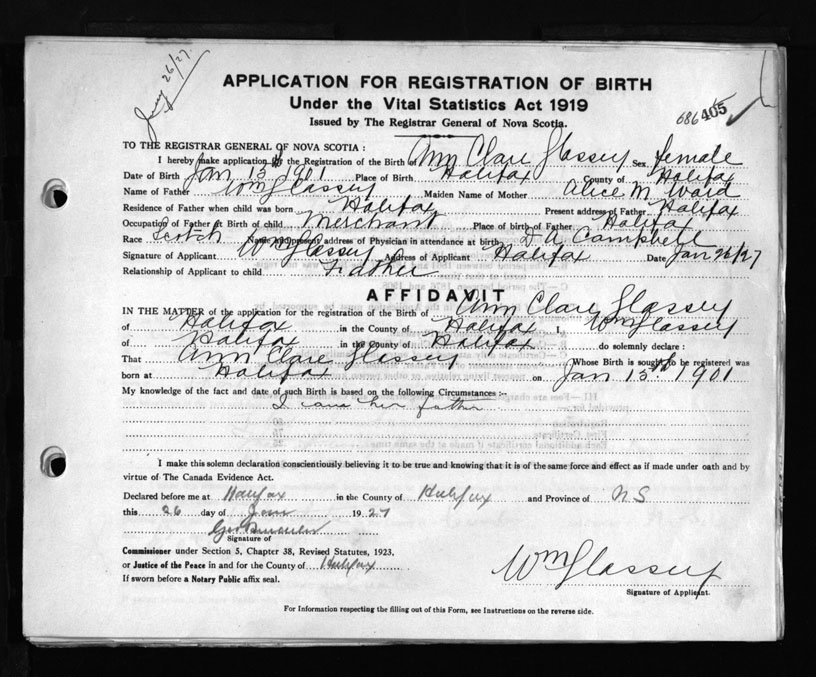 Jany 26/27
APPLICATION FOR REGISTRATION OF BIRTH
Under the Vital Statistics Act 1919
Issued by The Registrar General of Nova Scotia.
686 405
TO THE REGISTRAR GENERAL OF NOVA SCOTIA :
I hereby make application for the Registration of the Birth of Ann Clare Glassey Sex female
Date of Birth Jan 13th 1901 Place of Birth Halifax County of Halifax
Name of Father Wm Glassey Maiden Name of Mother Alice M. Ward
Residence of Father when child was born Halifax Present address of Father Halifax
Occupation of Father at Birth of child Merchant Place of birth of Father Halifax
Race Scotch Name and present address of Physician in attendance at birth D A Campbell
Signature of Applicant Wm Glassey Address of Applicant Halifax Date Jan 26/27
Relationship of Applicant to child Father
AFFIDAVIT
IN THE MATTER of the application for the registration of the Birth of Ann Clare Glassey
of Halifax in the County of Halifax I, Wm Glassey
of Halifax in the County of Halifax do solemnly declare :
That Ann Clare Glassey Whose Birth is sought to be registered was
born at Halifax on Jan 13th 1901
My knowledge of the fact and date of such Birth is based on the following Circumstances :-
I am her father
I make this solemn declaration conscientiously believing it to be true and knowing that it is of the same force and effect as if made under oath and by
virtue of The Canada Evidence Act.
Declared before me at Halifax in the County of Halifax and Province of NS
this 26 day of Jan 1927
Signature of
Commissioner under Section 5, Chapter 38, Revised Statutes, 1923,
or Justice of the Peace in and for the County of Halifax
If sworn before a Notary Public affix seal.
Wm Glassey
Signature of Applicant.
For Information respecting the filling out of this Form, see Instructions on the reverse side.